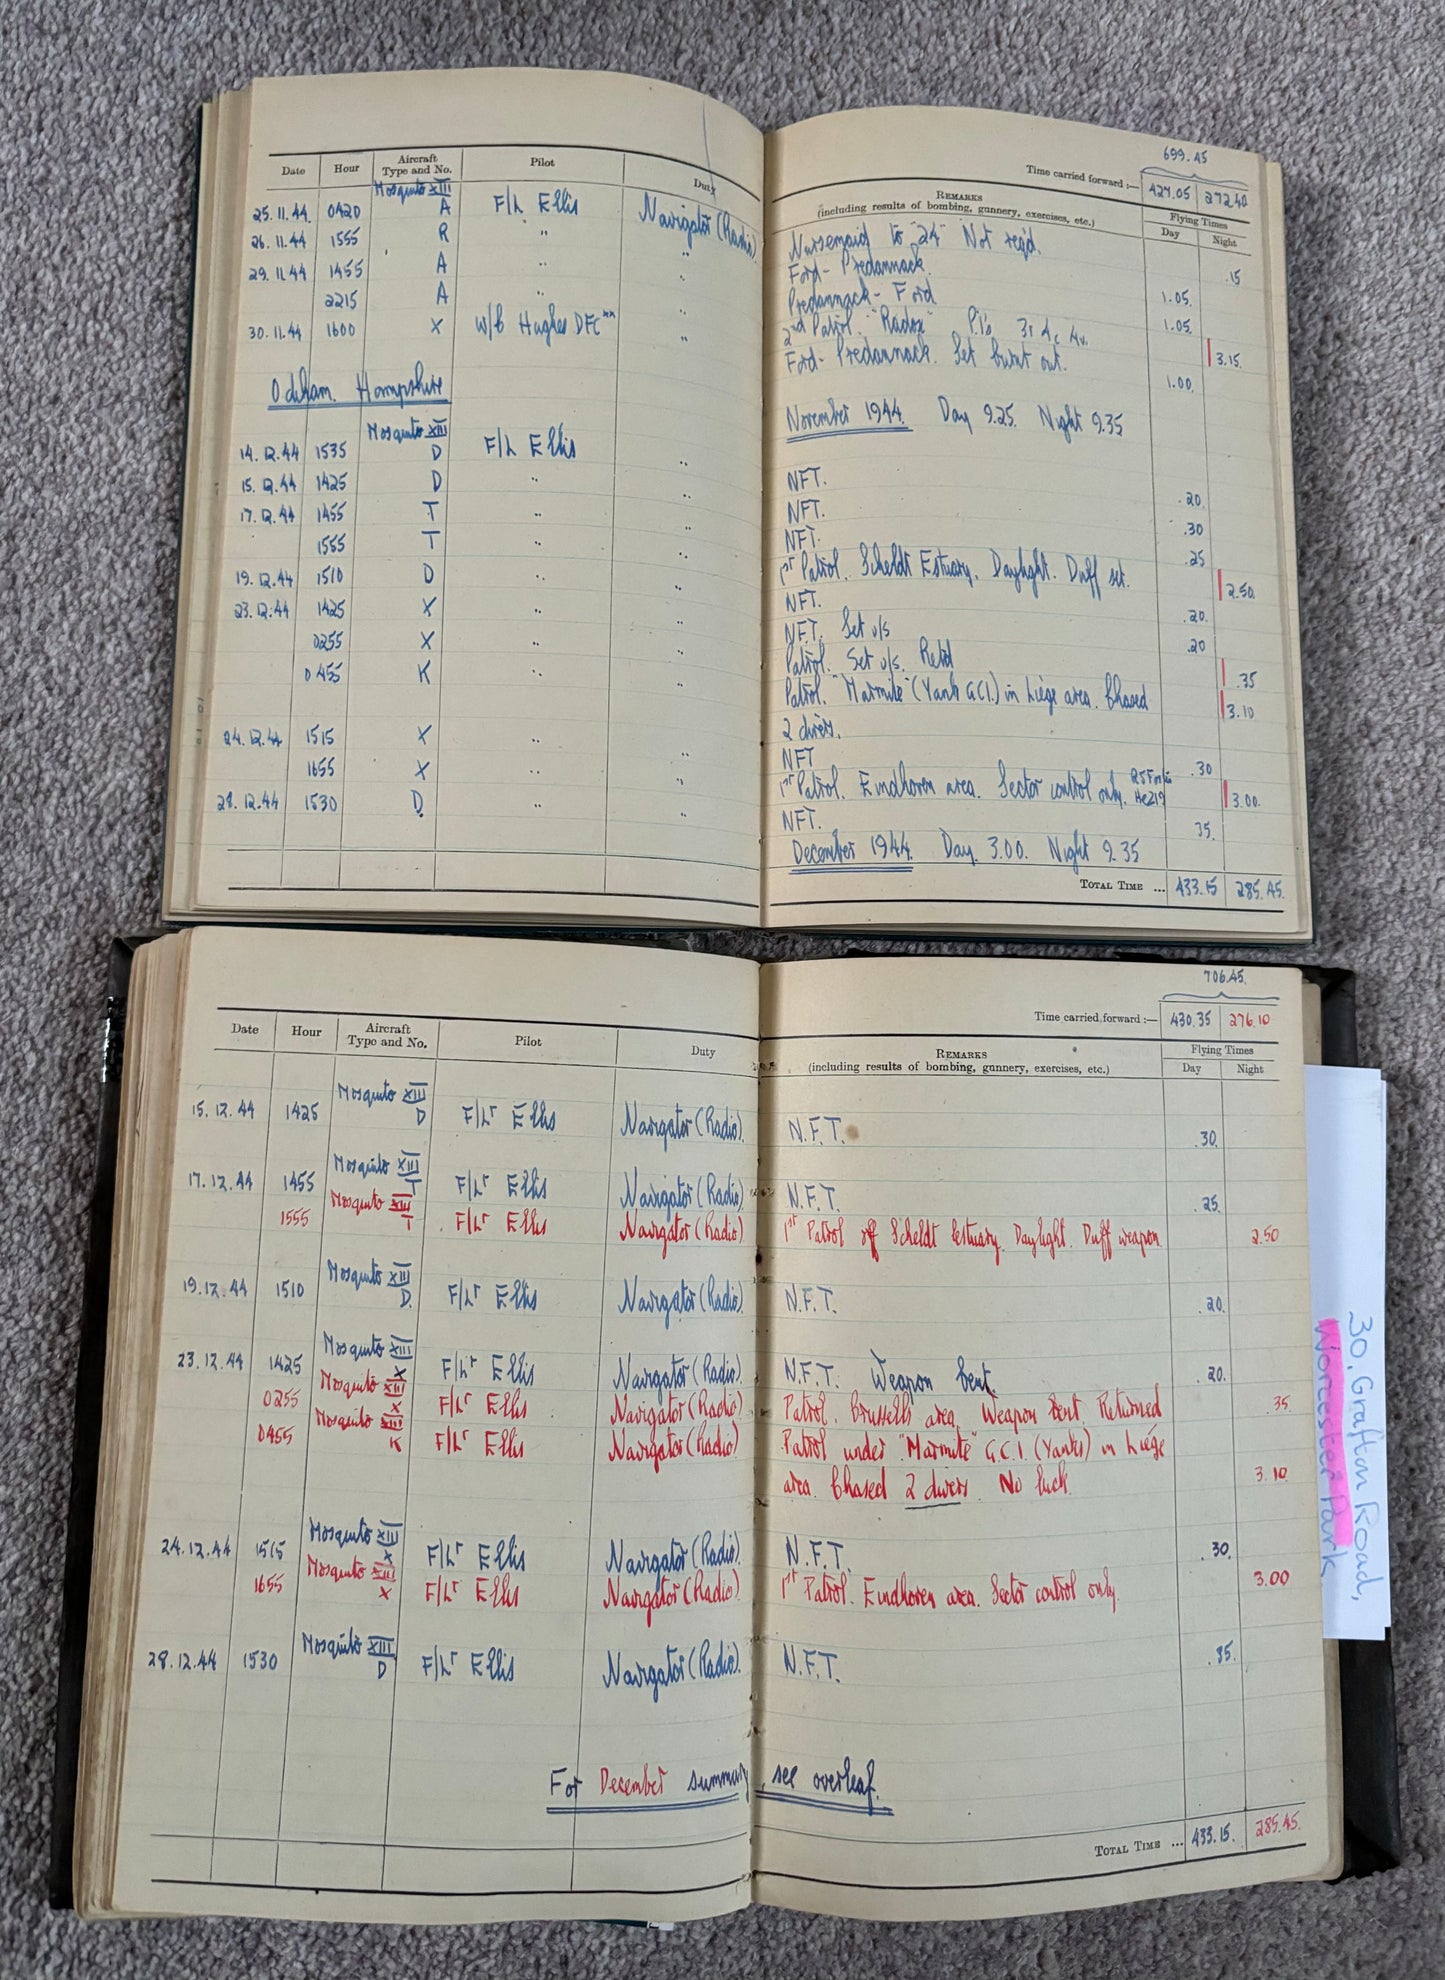 699.45
Date Hour Aircraft Type and No. Pilot Duty
Time carried forward :— 427.05 272.40
REMARKS
(including results of bombing, gunnery, exercises, etc.)
Flying Times
Day Night
Mosquito XIII
25.11.44 0420 A F/L Ellis Navigator (Radio) Nursemaid to "24" Not req'd. .15
26.11.44 1555 R " " Ford - Predannack. 1.05.
29.11.44 1455 A " " Predannack - Ford 1.05.
2215 A " " 2nd Patrol. "Radox" P.I's 3. 3.15.
30.11.44 1600 X W/C Hughes DFC** " Ford - Predannack. Set burnt out. 1.00.
Odiham. Hampshire
November 1944. Day 9.25. Night 9.35
Mosquito XIII
14.12.44 1535 D F/L Ellis " NFT. .20
15.12.44 1425 D " " NFT. .30
17.12.44 1455 T " " NFT. .25
1555 T " " 1st Patrol. Scheldt Estuary. Daylight. Duff set. 2.50.
19.12.44 1510 D " " NFT. .20.
23.12.44 1425 X " " NFT. Set u/s .20
0255 X " " Patrol. Set u/s. Retd .35
0455 K " " Patrol. "Marmite" (Yank G.C.I.) in Liège area. Chased 3.10
2 divers.
24.12.44 1515 X " " NFT .30
1655 X " " 1st Patrol. Eindhoven area. Sector control only. He219 3.00.
28.12.44 1530 D. " " NFT. 35.
December 1944. Day. 3.00. Night 9.35
TOTAL TIME ... 433.15 285.45.
706.45.
Date Hour Aircraft Type and No. Pilot Duty
Time carried forward :— 430.35 276.10
REMARKS
(including results of bombing, gunnery, exercises, etc.)
Flying Times
Day Night
Mosquito XIII
15.12.44 1425 D F/Lt Ellis Navigator (Radio). N.F.T. .30.
Mosquito XIII
17.12.44 1455 T F/Lt Ellis Navigator (Radio) N.F.T. .25.
Mosquito XIII
1555 T F/Lt Ellis Navigator (Radio) 1st Patrol off Scheldt Estuary. Daylight. Duff weapon. 2.50
Mosquito XIII
19.12.44 1510 D. F/Lt Ellis Navigator (Radio). N.F.T. .20.
Mosquito XIII
23.12.44 1425 X F/Lt Ellis Navigator (Radio) N.F.T. Weapon bent. .20.
Mosquito XIII
0255 X F/Lt Ellis Navigator (Radio) Patrol. Brussells area. Weapon bent. Returned .35.
Mosquito XIII
0455 K F/Lt Ellis Navigator (Radio) Patrol under "Marmite" G.C.I. (Yanks) in Liège
area. Chased 2 divers. No luck. 3.10
Mosquito XIII
24.12.44 1515 X F/Lt Ellis Navigator (Radio). N.F.T. .30.
Mosquito XIII
1655 X F/Lt Ellis Navigator (Radio). 1st Patrol. Eindhoven area. Sector control only. 3.00
Mosquito XIII
28.12.44 1530 D F/Lt Ellis Navigator (Radio). N.F.T. .35.
For December summary, see overleaf.
TOTAL TIME ... 433.15. 285.45.
30. Grafton Road,
Worcester Park.